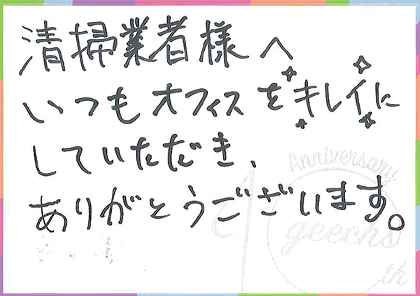 清掃業者様へ
いつもオフィスをキレイに
していただき、
ありがとうございます。
Anniversary
10th
geechs